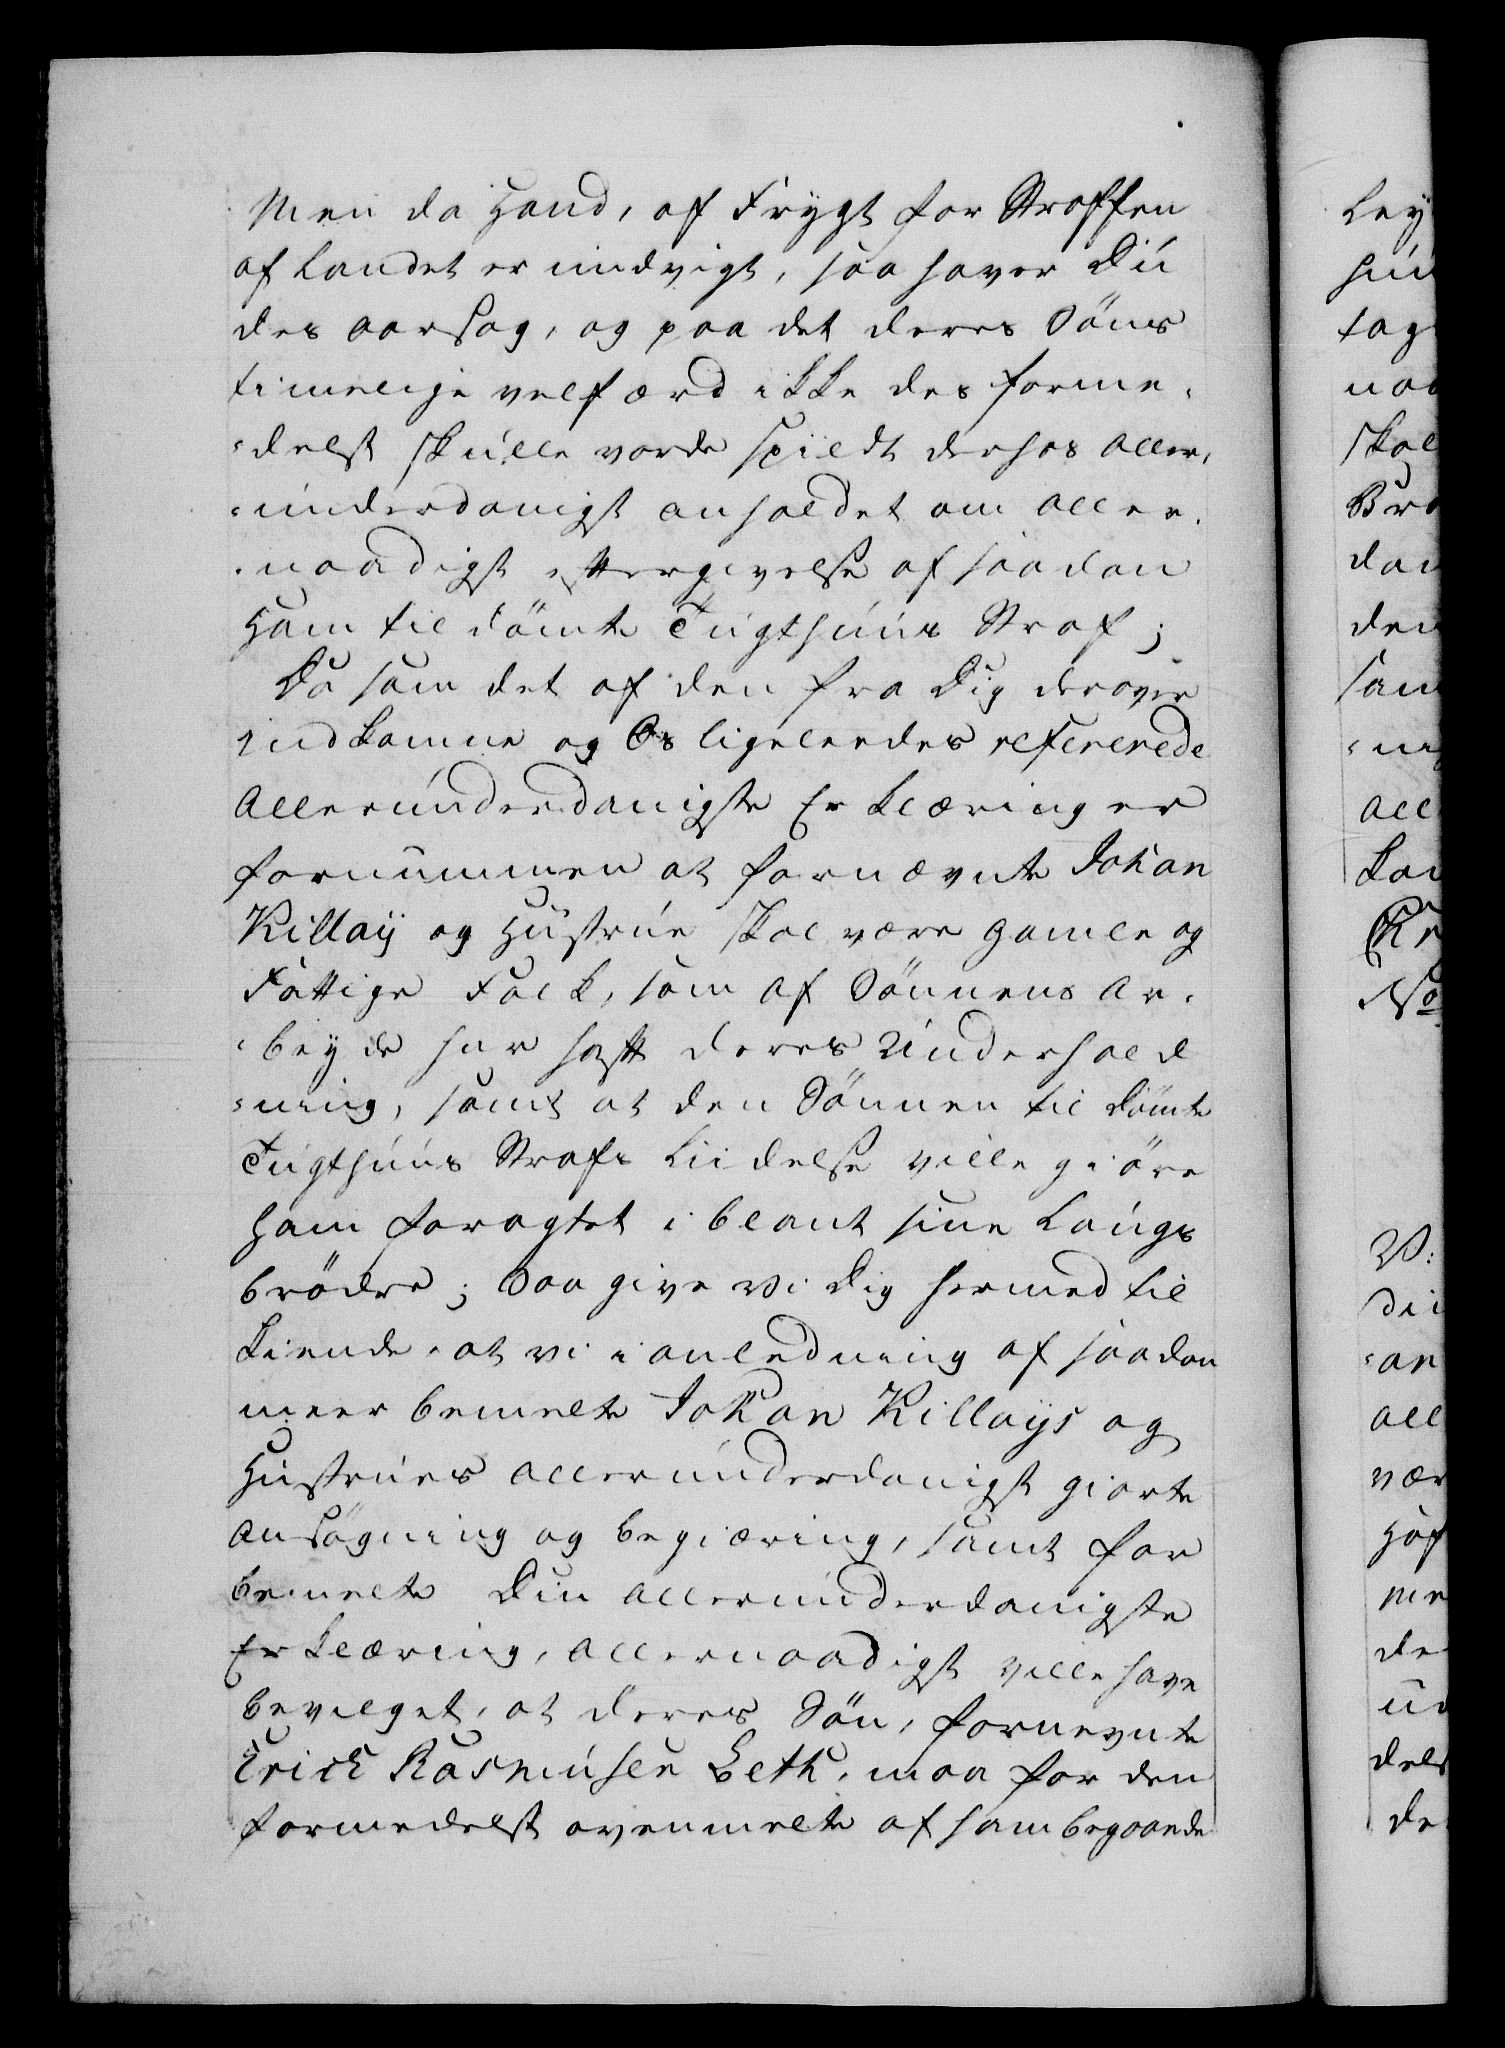 Men da Hand, af Frygt for Straffen
af Landet er undvigt, saa haver Du
des aarsag, og paa det deres Söns
timelige velfærd ikke des forme-
-delst skulle vorde spildt derhos aller-
-underdanigst anholdet om aller-
-naadigst eftergivelse af saadan
Ham til dömte Tugthuus Straf;
Da som det af den fra Dig derover
indkomne og Os ligeleedes refererede
Allerunderdanigste Erklæring er
fornummen at fornævnte Johan
Killaÿ og Hustrue skal være gamle og
Fattige Folk, som af Sönnens Ar-
-beyde har haft deres Underhold
-ning, samt at den Sönnen til dömte
Tugthuus Strafs Liidelse ville giöre
ham foragtet i blant sine Laugs
brödre; Saa give Vi Dig hermed til
kiende, at vi i anledning af saadan
meer bemelte Johan Killaÿs og
Hustrues allerunderdanigst giorte
Ansögning og begiæring, samt for
bemelte Din allerunderdanigste
Erklæring, allernaadigst ville have
bevilget, at deres Sön, fornevnte
Erich Rasmusen Beth, maa for den
formedelst ovenmelte af ham begaaede